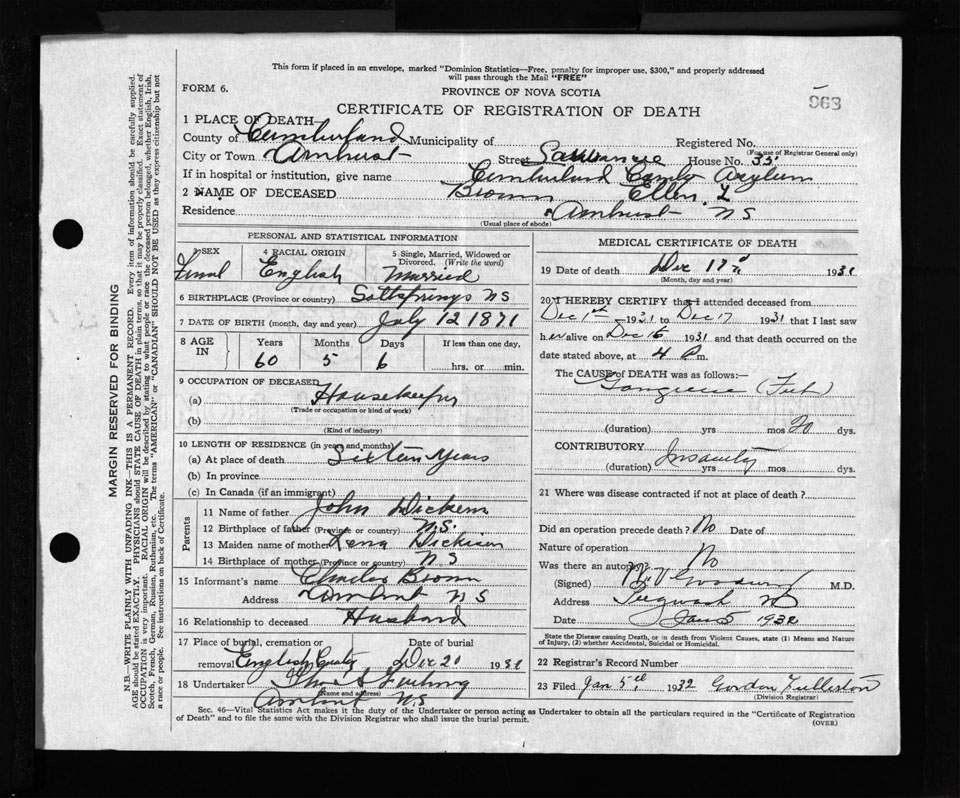 This form if placed in an envelope, marked "Dominion Statistics—Free, penalty for improper use, $300," and properly addressed
will pass through the Mail "FREE"
FORM 6.
PROVINCE OF NOVA SCOTIA
963
CERTIFICATE OF REGISTRATION OF DEATH
1 PLACE OF DEATH—
County of Cumberland Municipality of Registered No.
(For use of Registrar General only)
City or Town Amhurst Street House No. 35
If in hospital or institution, give name Cumberland Asylum
2 NAME OF DECEASED Brown Ellen L
Residence Amhurst NS
(Usual place of abode)
PERSONAL AND STATISTICAL INFORMATION
3 SEX 4 RACIAL ORIGIN 5 Single, Married, Widowed or
Divorced. (Write the word)
English Married
6 BIRTHPLACE (Province or country) NS
7 DATE OF BIRTH (month, day and year) July 12 1871
8 AGE IN Years Months Days If less than one day,
60 5 6 hrs. or min.
9 OCCUPATION OF DECEASED
(a) Housekeeper
(Trade or occupation or kind of work)
(b)
(Kind of industry)
10 LENGTH OF RESIDENCE (in years and months)
(a) At place of death Sixteen Years
(b) In province
(c) In Canada (if an immigrant)
Parents
11 Name of father John
12 Birthplace of father (Province or country) N.S.
13 Maiden name of mother Lena
14 Birthplace of mother (Province or country) N S
15 Informant's name Charles Brown
Address Amhurst N S
16 Relationship to deceased Husband
17 Place of burial, cremation or Date of burial
removal English Dec 20 1931
18 Undertaker
(Name and address)
N.S
MEDICAL CERTIFICATE OF DEATH
19 Date of death Dec 17 1931
(Month, day and year)
20 I HEREBY CERTIFY that I attended deceased from
Dec 1st 1931 to Dec 17 1931 that I last saw
her alive on Dec 16 1931 and that death occurred on the
date stated above, at 4 P m.
The CAUSE of DEATH was as follows:—
Gangrene (Feet)
(duration) yrs mos 20 dys.
CONTRIBUTORY Insanity
(duration) yrs mos dys.
21 Where was disease contracted if not at place of death?
Did an operation precede death? No Date of
Nature of operation
Was there an autopsy No
(Signed) M.D.
Address Pugwash NS
Date Jan 5 1932
State the Disease causing Death, or in death from Violent Causes, state (1) Means and Nature
of Injury, (2) whether Accidental, Suicidal or Homicidal.
22 Registrar's Record Number
23 Filed Jan 5th 1932 Gordon Fullerton
(Division Registrar)
Sec. 46—Vital Statistics Act makes it the duty of the Undertaker or person acting as Undertaker to obtain all the particulars required in the "Certificate of Registration
of Death" and to file the same with the Division Registrar who shall issue the burial permit.
(OVER)
MARGIN RESERVED FOR BINDING
N.B.—WRITE PLAINLY WITH UNFADING INK—THIS IS A PERMANENT RECORD. Every item of information should be carefully supplied.
AGE should be stated EXACTLY. PHYSICIANS should STATE CAUSE OF DEATH in plain terms, so that it may be properly classified. Exact statement of
OCCUPATION is very important. RACIAL ORIGIN will be described by stating to what people or race the deceased person belonged, whether English, Irish,
Scotch, French, German, Russian, Ruthenian, etc. The terms "AMERICAN" or "CANADIAN" SHOULD NOT BE USED as they express citizenship but not
a race or people. See instructions on back of Certificate.